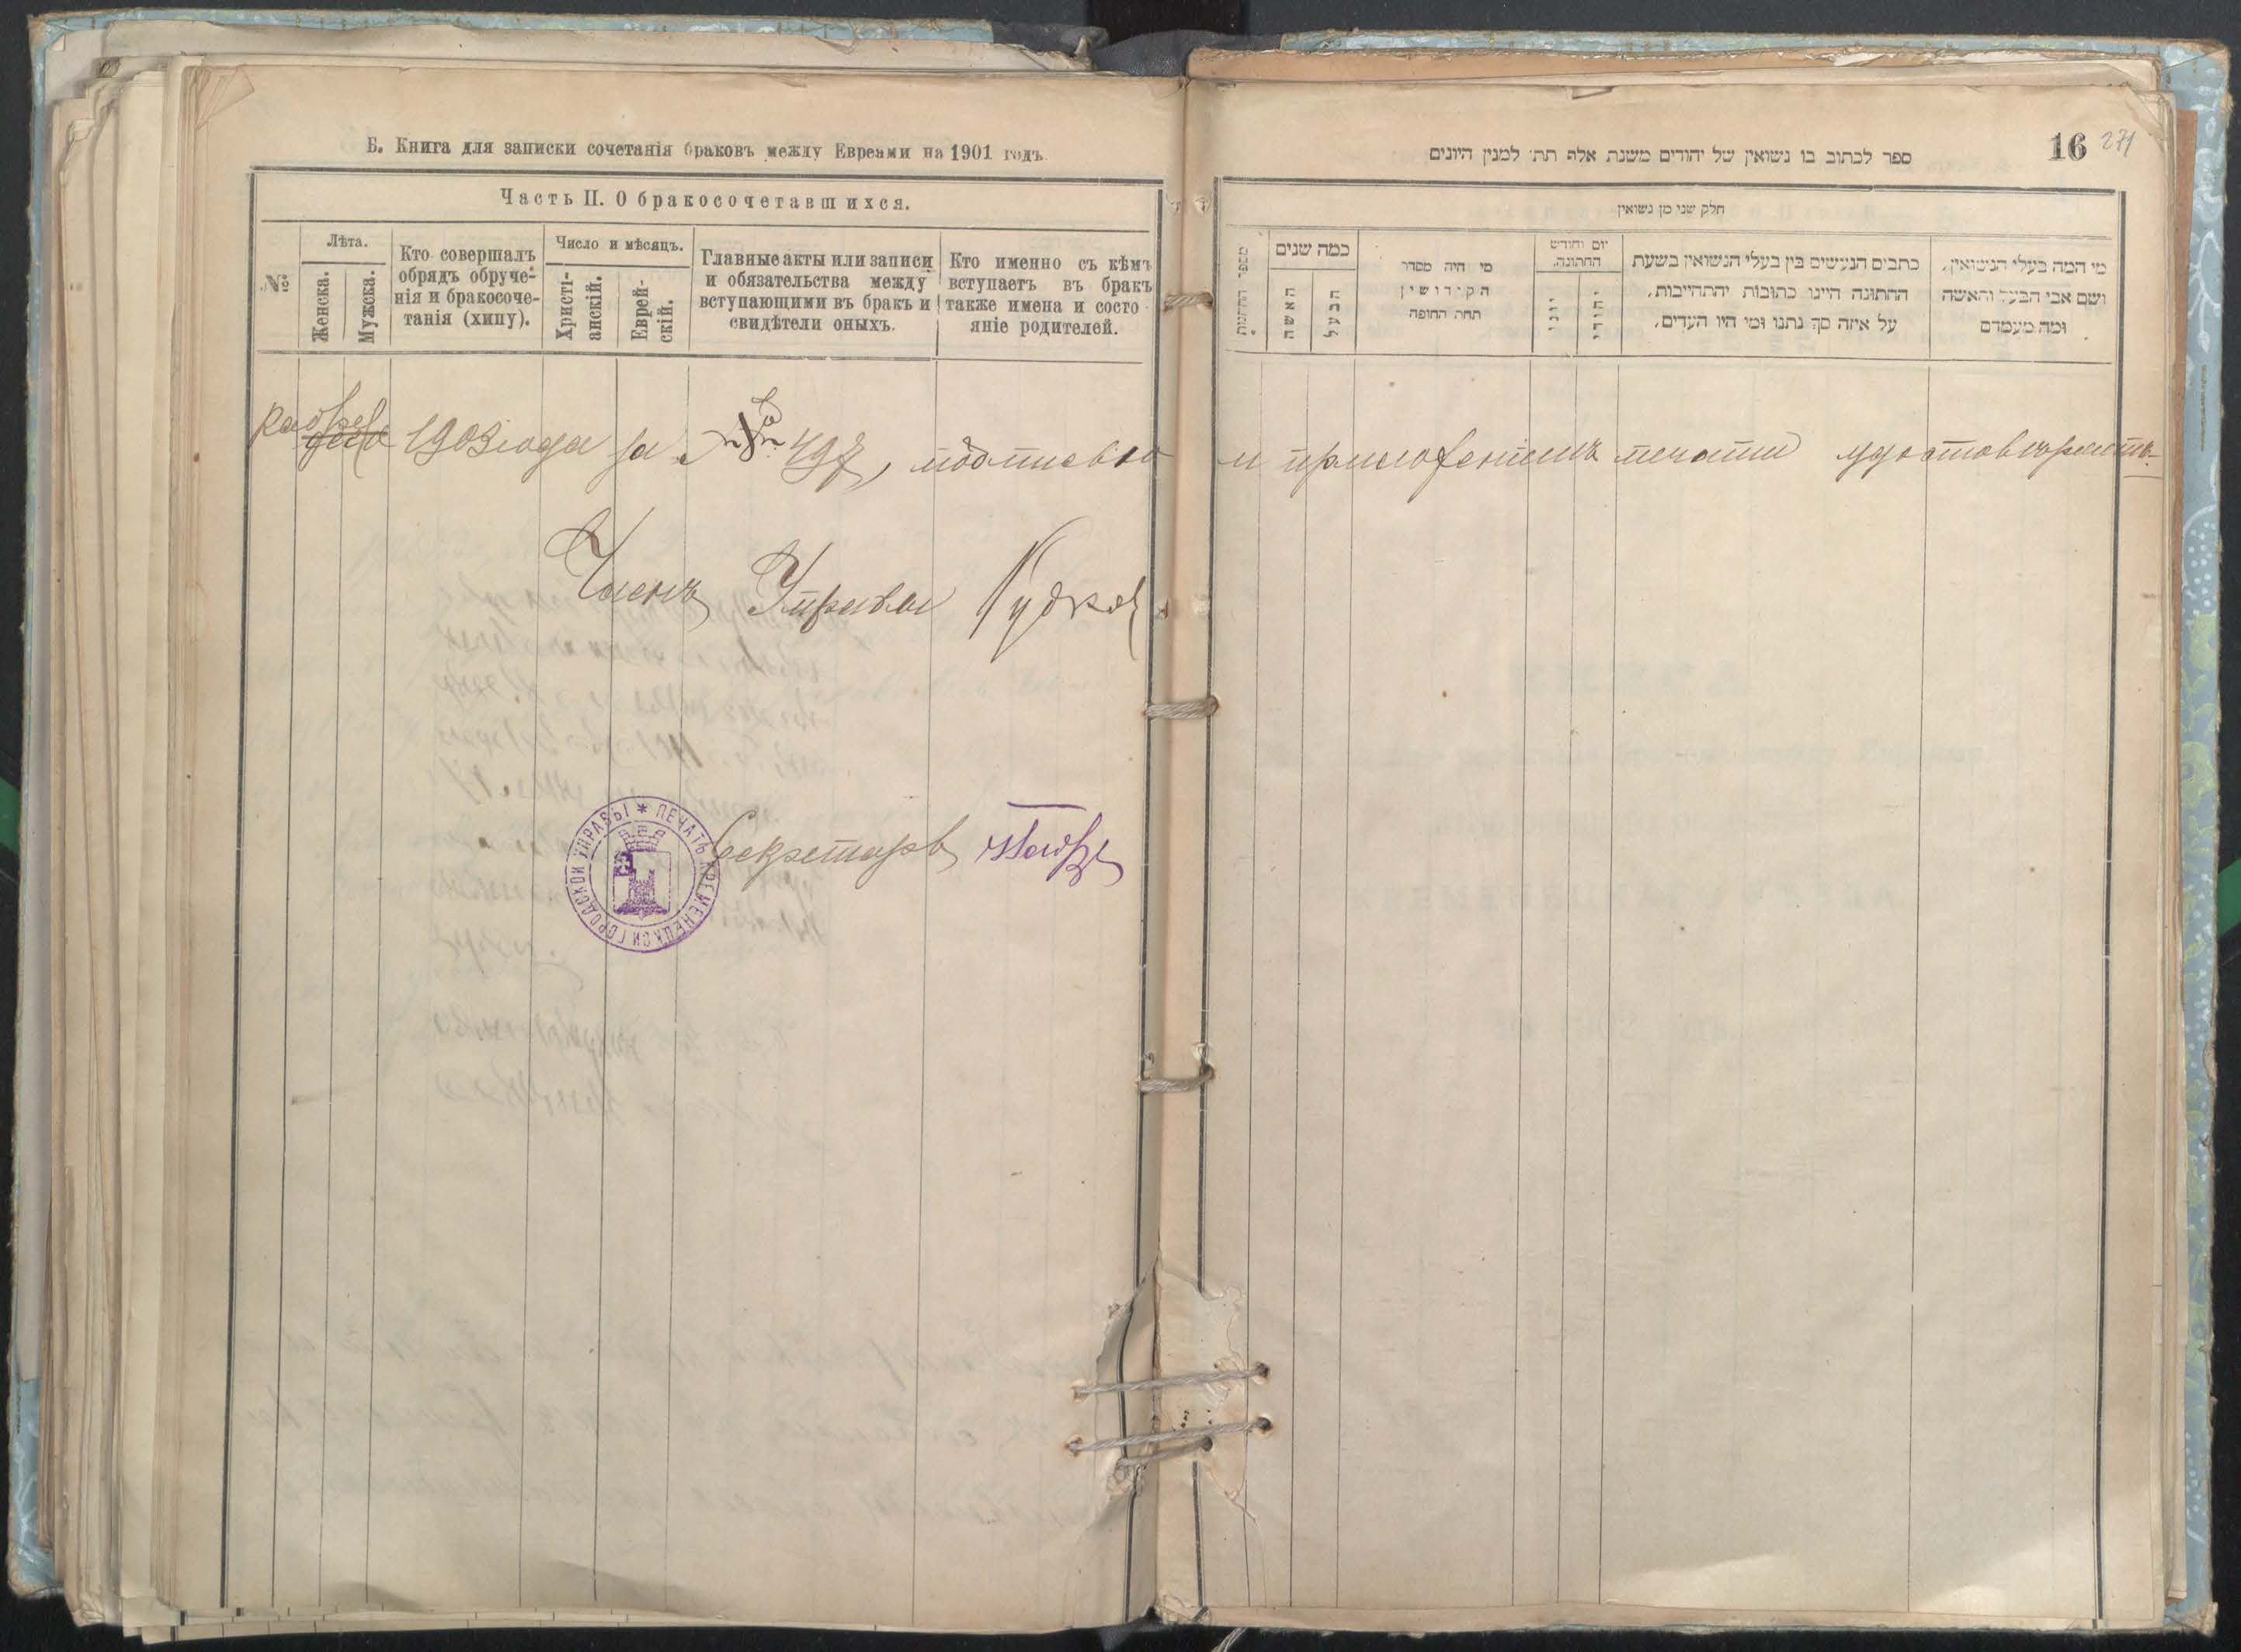 Б. Книга для записки сочетанія браковъ между Евреями на 1901 годъ.
Часть II. О бракосочетавшихся.
№
Лѣта.
Женска.
Мужска.
Кто совершалъ
обрядъ обруче-
нія и бракосоче-
танія (хипу).
Число и мѣсяцъ.
Христі-
анскій.
Еврей-
скій.
Главные акты или записи
и обязательства между
вступающими въ бракъ и
свидѣтели оныхъ.
Кто именно съ кѣмъ
вступаетъ въ бракъ
также имена и состо-
яніе родителей.
1903 года за № 497, подписью
Членъ Управы
Секретарь
ПЕЧАТЬ КРЕМЕНЕЦКОЙ ГОРОДСКОЙ УПРАВЫ *
16 271
ספר לכתוב בו נשואין של יהודים משנת אלף תת׳ למנין היונים
חלק שני מן נשואין
מי המה בעלי הנשואין,
ושם אבי הבעל והאשה
ומה מעמדם
כתבים הנעשים בין בעלי הנשואין בשעת
החתונה היינו כתובות יהתהייבות,
על איזה סך נתנו ומי היו העדים,
יום וחודש
החתונה.
יהודי
יוני
מי היה מסדר
הקידושין
תחת החופה
כמה שנים
הבעל
האשה
и приложеніемъ печати удостовѣряетъ